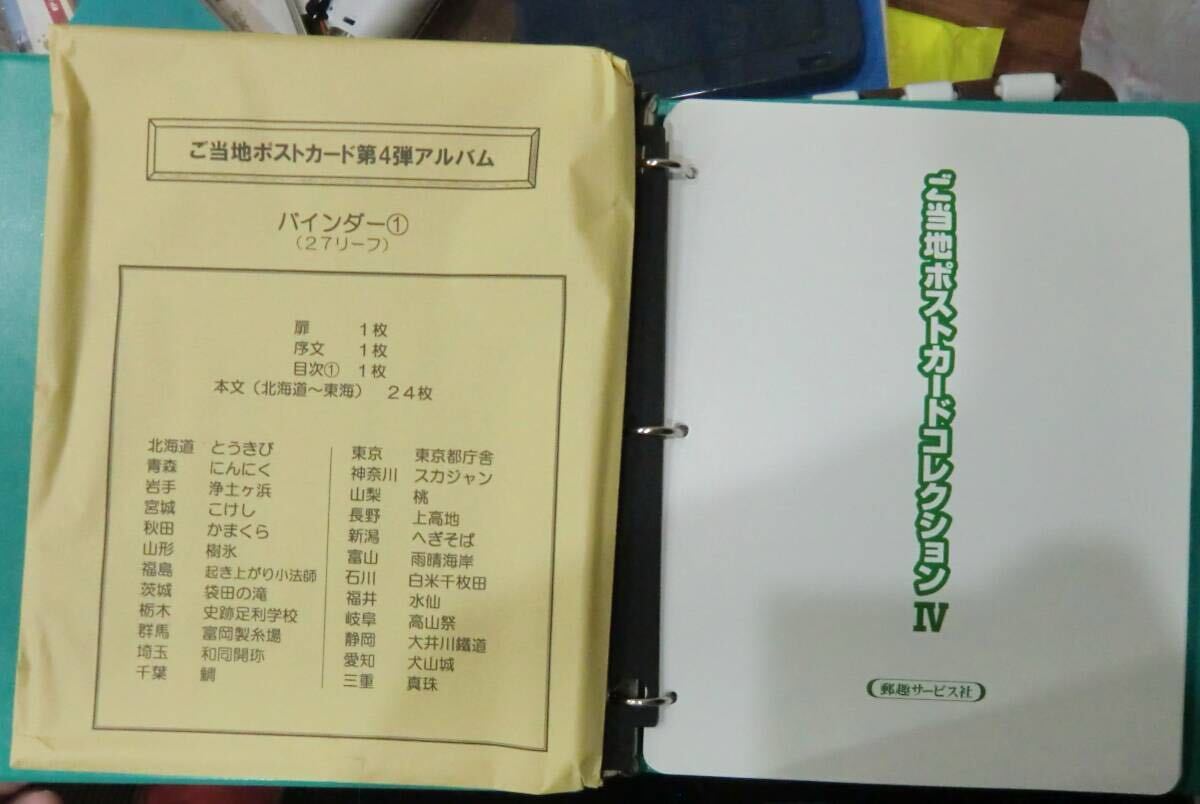 ご当地ポストカード第4弾アルバム
バインダー①
（27リーフ）
扉 1枚
序文 1枚
目次① 1枚
本文（北海道～東海） 24枚
北海道 とうきび
青森 にんにく
岩手 浄土ヶ浜
宮城 こけし
秋田 かまくら
山形 樹氷
福島 起き上がり小法師
茨城 袋田の滝
栃木 史跡足利学校
群馬 富岡製糸場
埼玉 和同開珎
千葉 鯛
東京 東京都庁舎
神奈川 スカジャン
山梨 桃
長野 上高地
新潟 へぎそば
富山 雨晴海岸
石川 白米千枚田
福井 水仙
岐阜 高山祭
静岡 大井川鐵道
愛知 犬山城
三重 真珠
ご当地ポストカードコレクションⅣ
郵趣サービス社